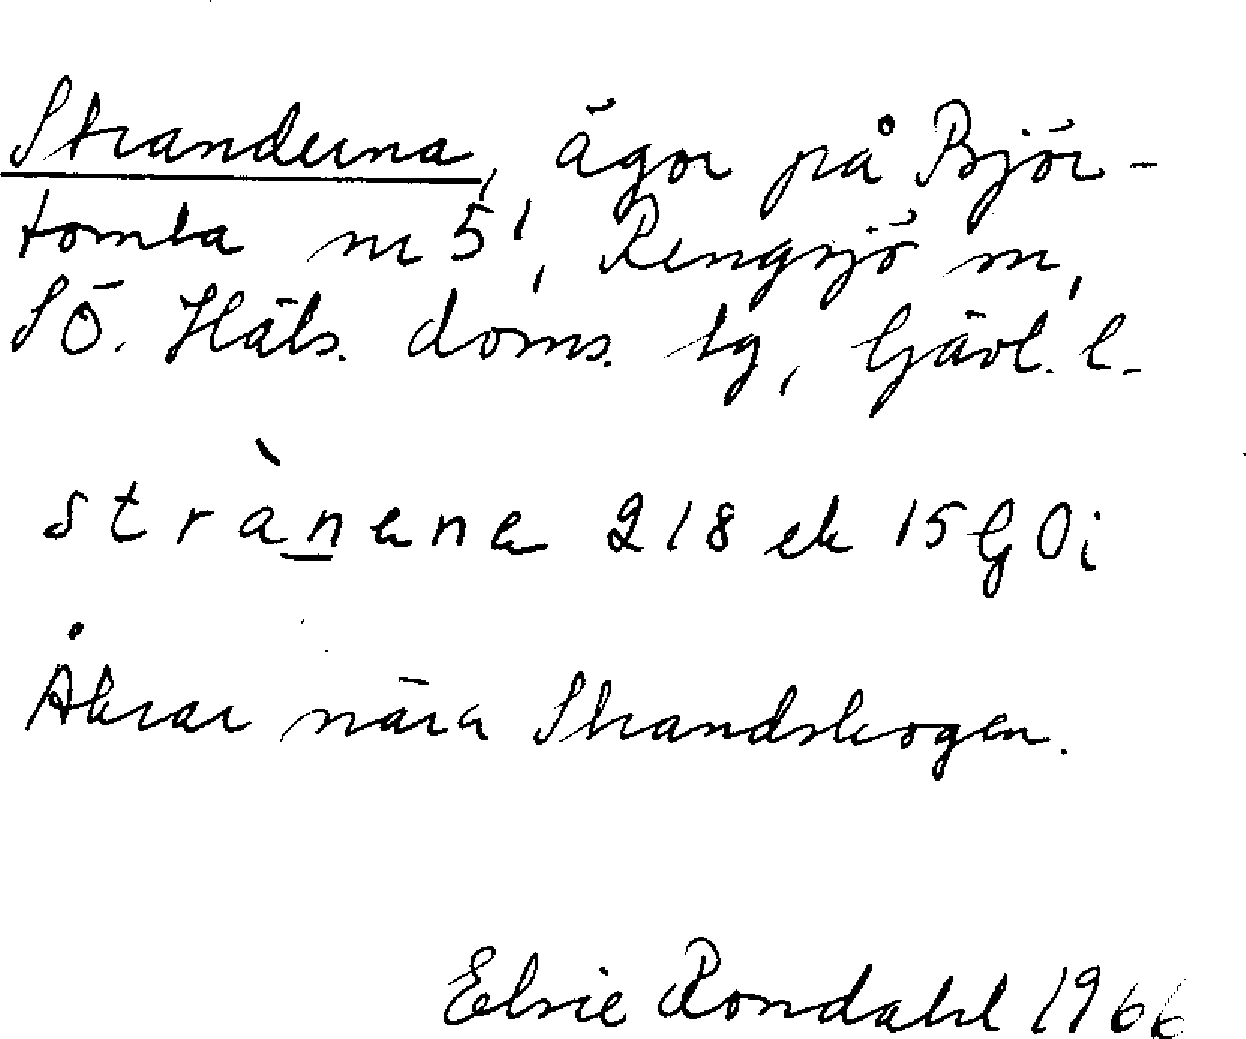 Stranderna, ägor på Björ-
tomta nr 5¹, Rengsjö sn,
SÖ. Häls. doms. lg, Gävl. l.
strànena 218 ek 15 GOi
Åkrar nära Strandskogen.
Elsie Rondahl 1966